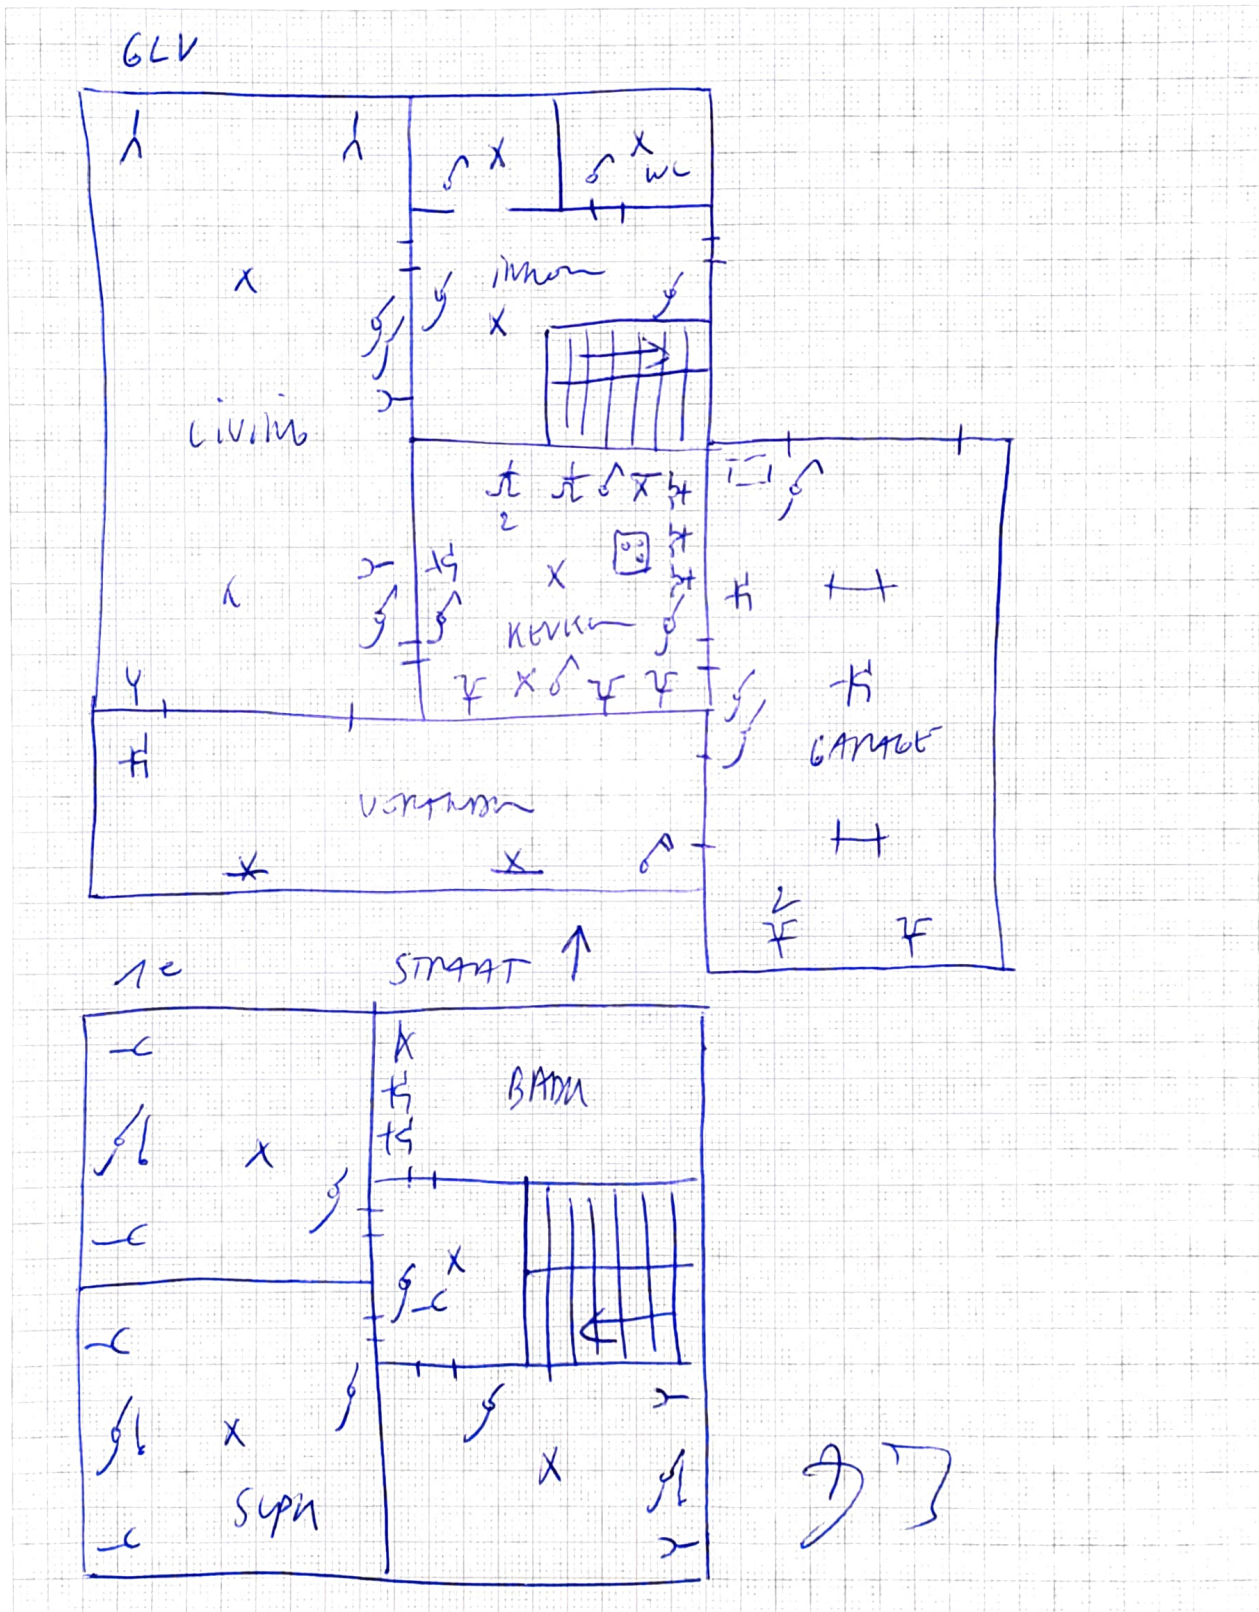 GLV
WC
inkom
Living
2
KEUKEN
GARAGE
VERANDA
2
1e
STRAAT
BADK
SLPK